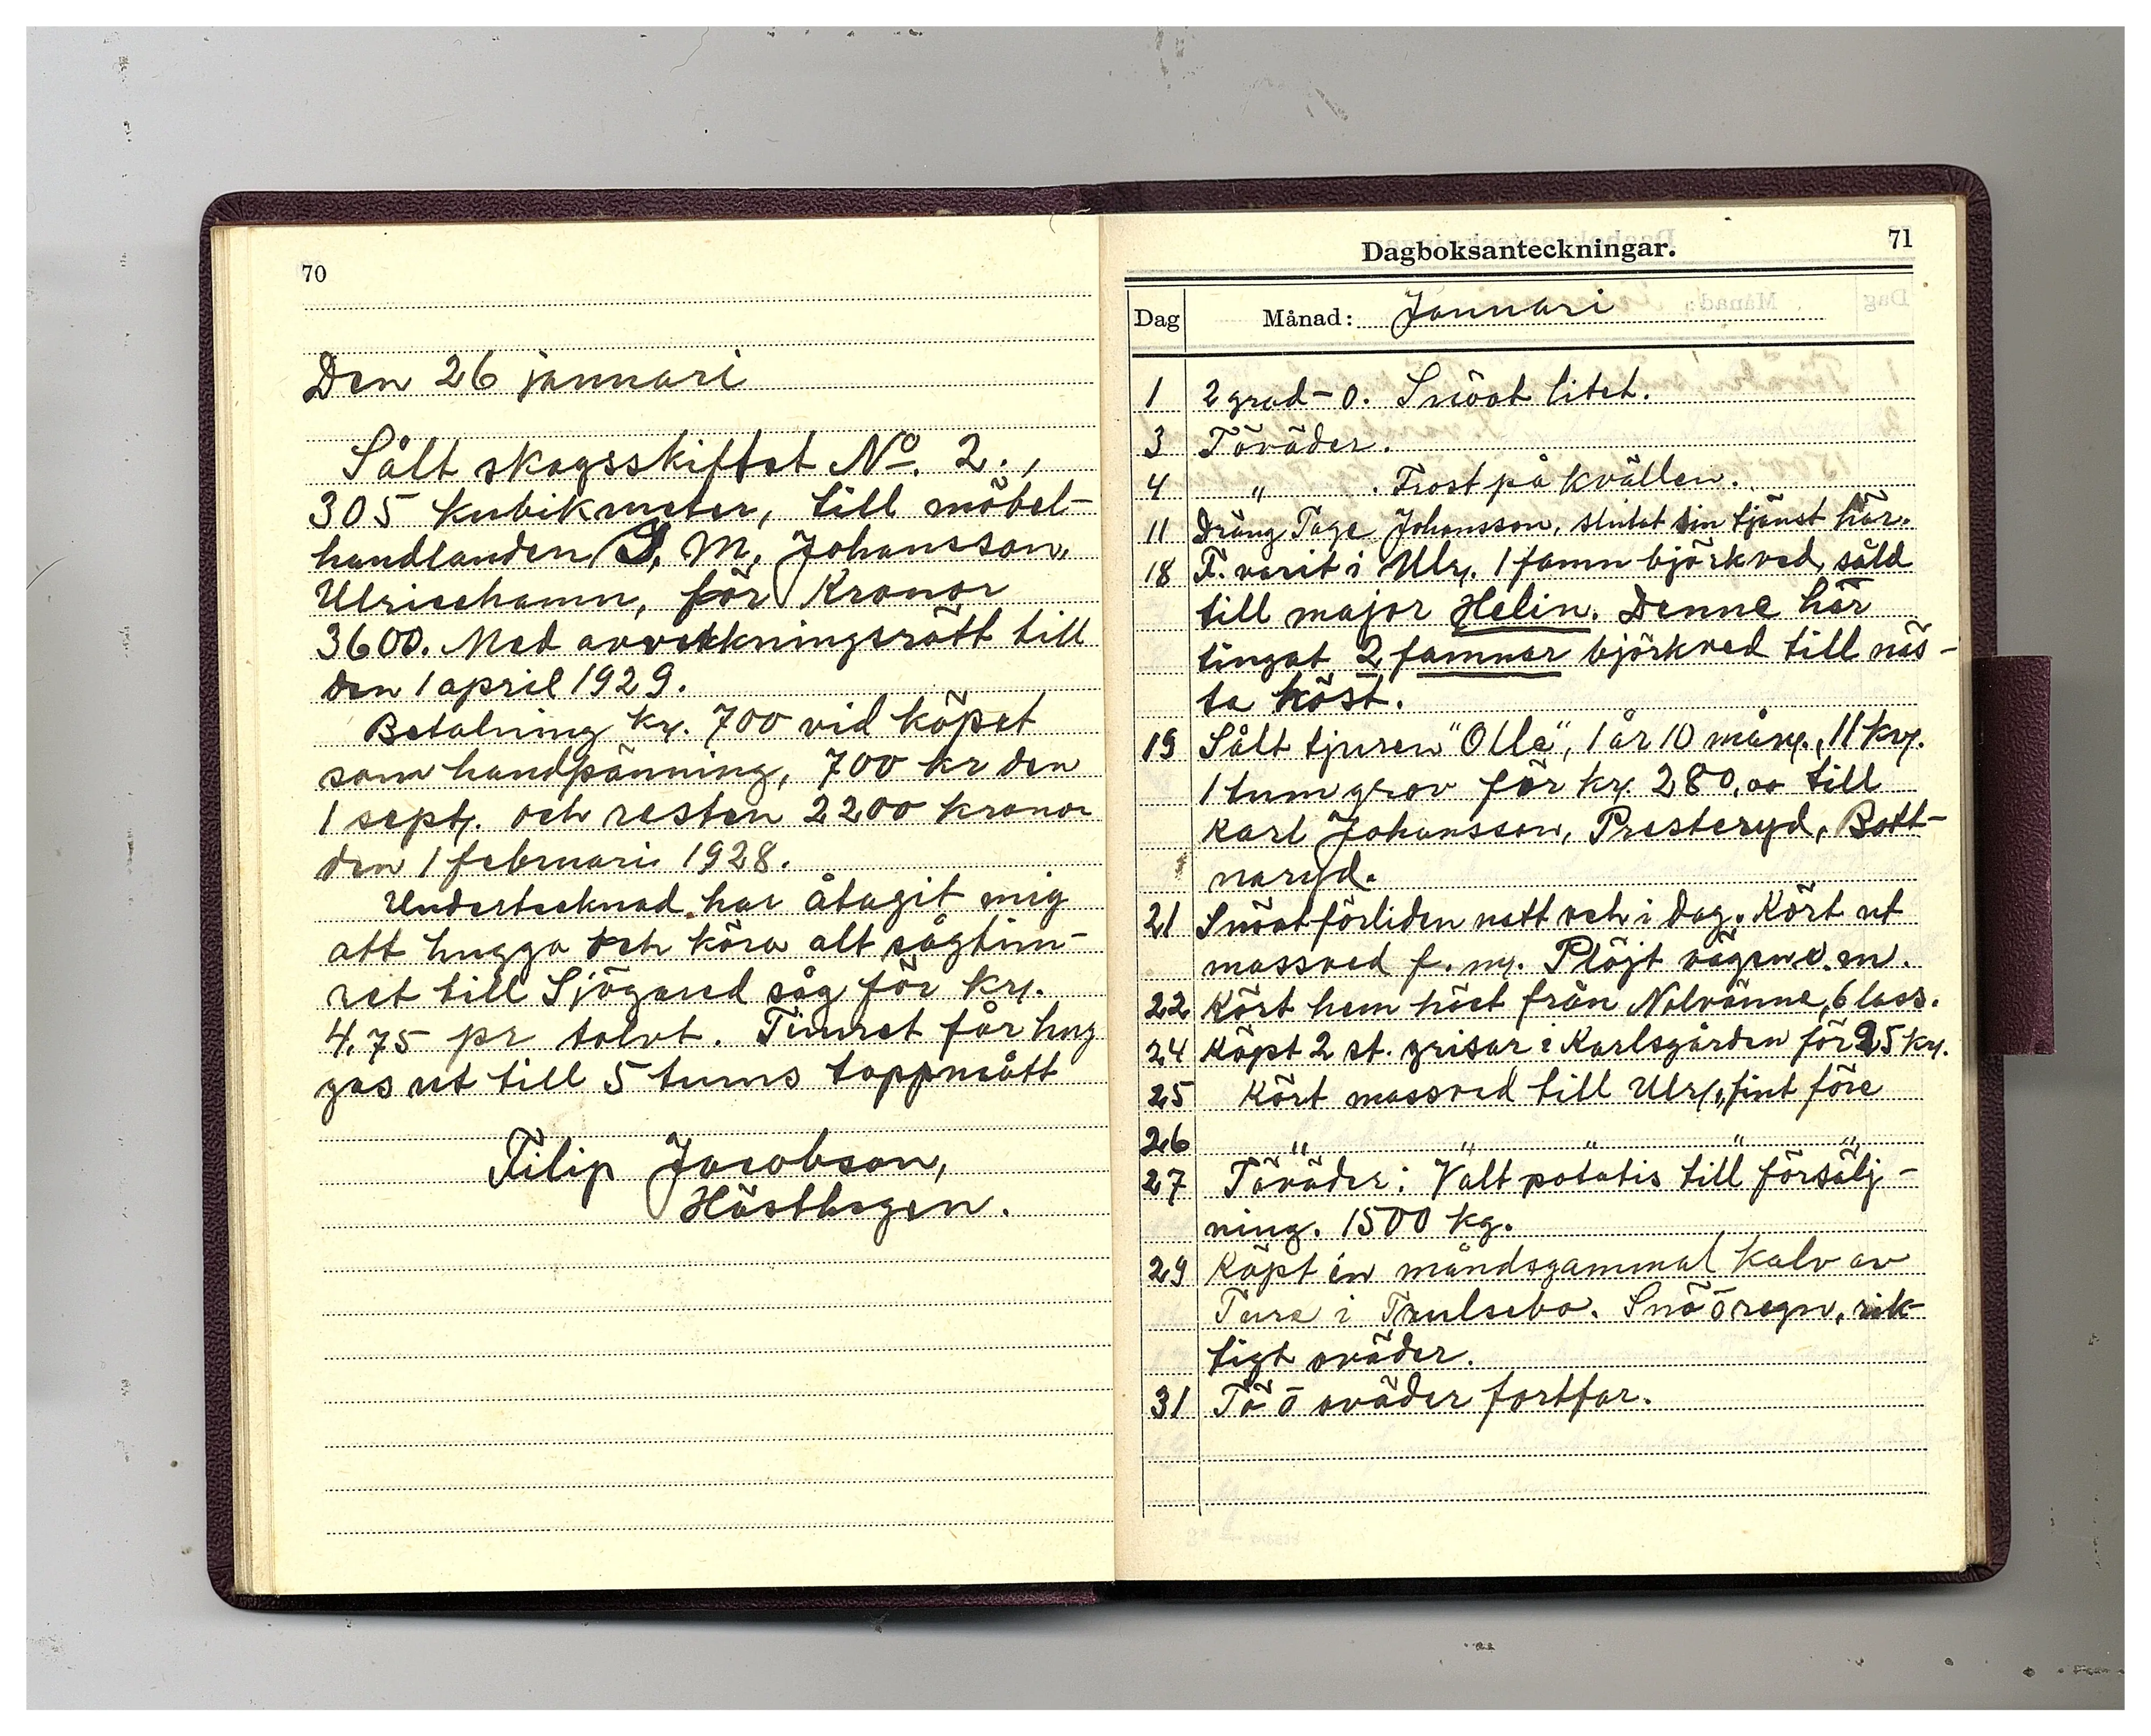 70
Den 26 januari
Sålt skogsskiftet No. 2.,
305 kubikmeter, till möbel-
handlanden S. M. Johansson,
Ulricehamn, för Kronor
3600. Med avverkningsrätt till
den 1 april 1929.
Betalning kr. 700 vid köpet
som handpänning, 700 kr den
1 sept. och resten 2200 kronor
den 1 februari 1928.
Undertecknad har åtagit mig
att hugga och köra alt sågtim-
ret till Sjögared såg för kr.
4,75 pr tolvt. Timret får hug
gas ut till 5 tums toppmått
Filip Jacobson,
Hästhagen.
71
Dagboksanteckningar.
Dag Månad: Januari
1 2 grad - 0. Snöat litet.
3 Töväder.
4 " . Frost på kvällen.
11 Dräng Tage Johansson, slutat sin tjänst här.
18 F. varit i Ulr. 1 famn björkved, såld
till major Helin. Denne här
tingat 2 famnar björkved till näs-
ta höst.
19 Sålt tjuren "Olle", 1 år 10 mån., 11 kv.
1 tum grov för kr. 280,00 till
Karl Johansson, Presteryd, Bott-
naryd.
21 Snöat förliden natt och i dag. Kört ut
massved f. m. Plöjt vägen e. m.
22 Kört hem höet från Nolvänne, 6 lass.
24 Köpt 2 st. grisar i Karlsgården för 25 kr.
25 Kört massved till Ulr., fint före
26 " " " " "
27 Töväder: Valt potatis till försälj-
ning. 1500 kg.
29 Köpt en måndsgammal kalv av
Ture i Trulsebo. Snö o regn, rik-
tigt oväder.
31 Tö o oväder fortfar.